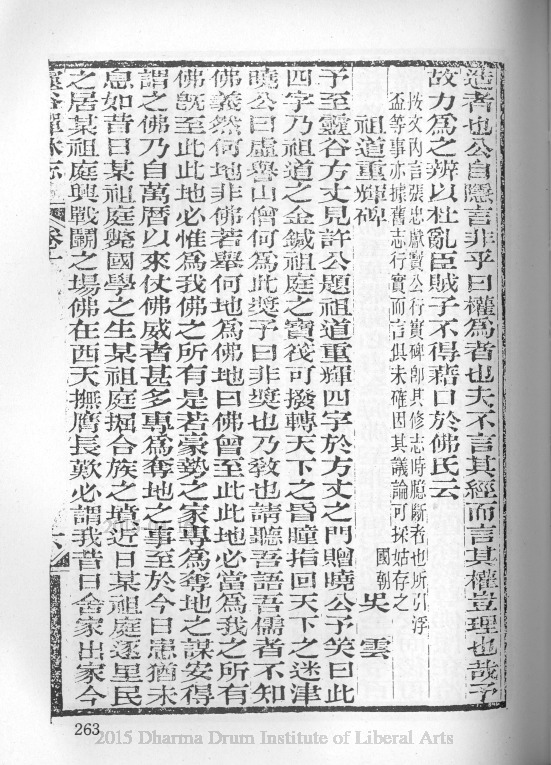 造者也公自隱言非乎曰權為者也夫不言其經而言其權豈理也哉予
故力為之辨以杜亂臣賊子不得藉口於佛氏云
按文內言張忠獻寶公行實碑卽其修志時臆斷者也所引浮
盃等事亦據舊志行實而言俱未確因其議論可採姑存之
祖道重輝碑
國朝吳雲
予至靈谷方丈見許公題祖道重輝四字於方丈之門贈曉公予笑曰此
四字乃祖道之金鍼祖庭之寶筏可撥轉天下之昏瞳指回天下之迷津
曉公曰虛譽山僧何為此獎予曰非獎也乃敎也請聽吾語吾儒者不知
佛義然何地非佛若舉何地為佛地曰佛曾至此此地必當為我之所有
佛旣至此此地必惟為我佛之所有是若豪勢之家專為奪地之謀安得
謂之佛乃自萬曆以來仗佛威者甚多專為奪地之事至於今日患猶未
息如昔日某祖庭斃國學之生某祖庭掘合族之墳近日某祖庭逐里民
之居某祖庭興戰鬬之場佛在西天撫膺長歎必謂我昔日舍家出家今
靈谷禪林志
卷十
六
263
2015 Dharma Drum Institute of Liberal Arts